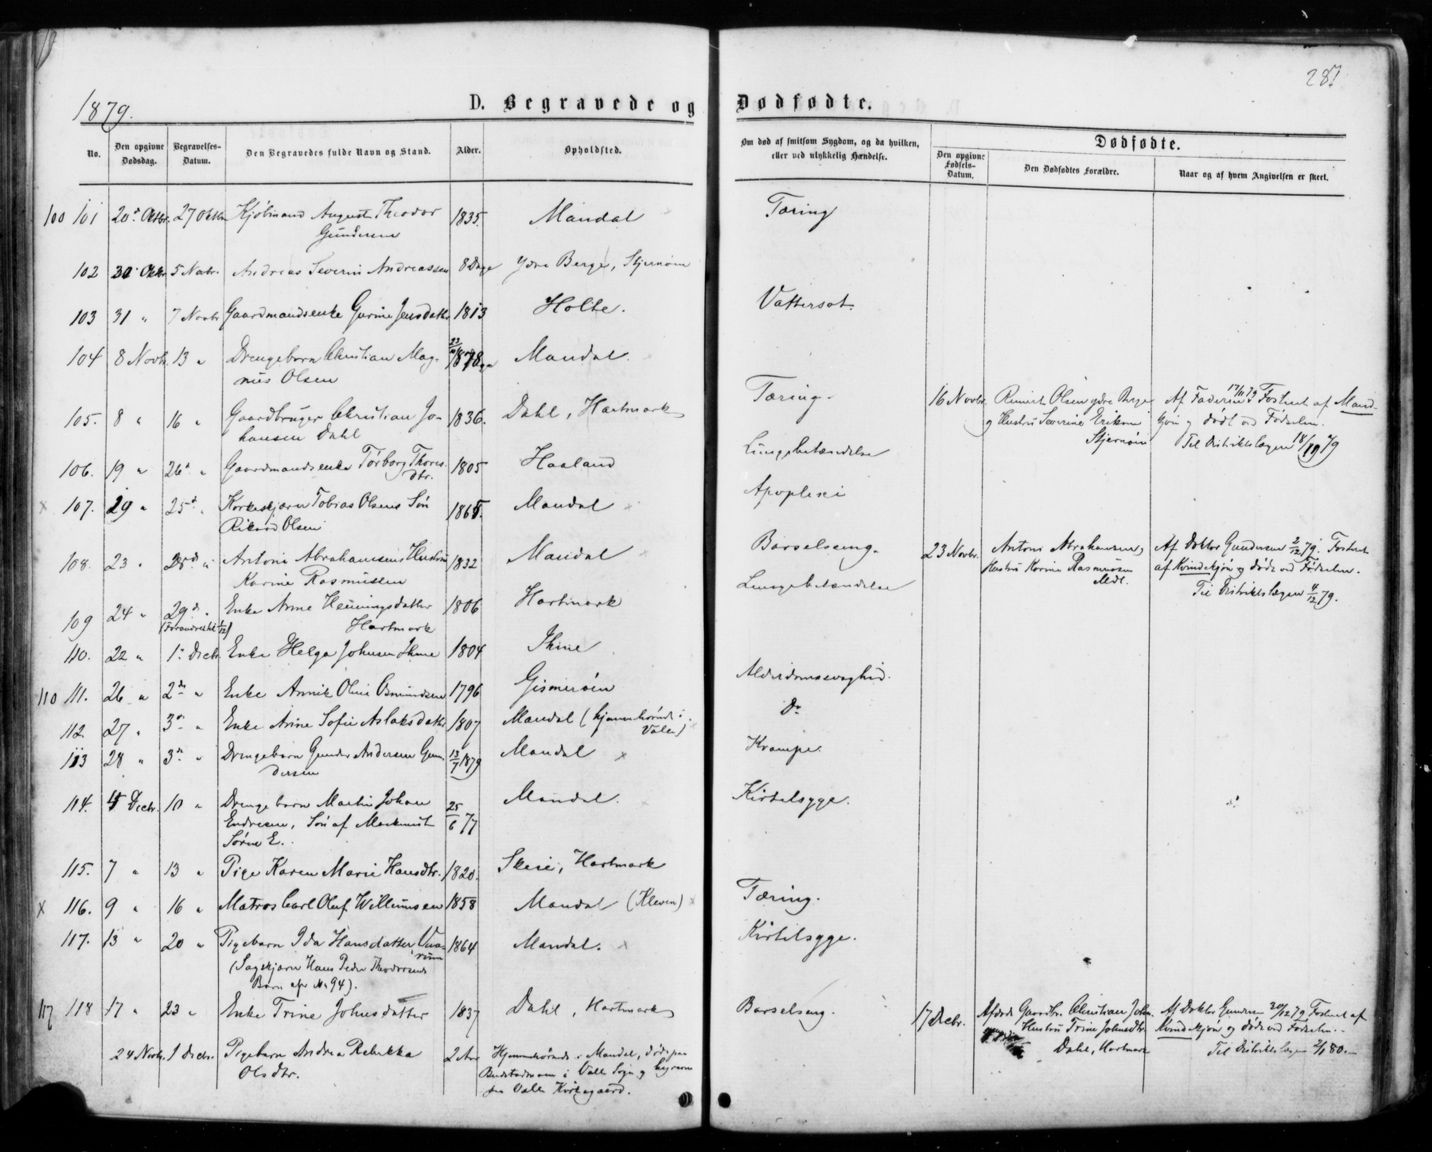 287
1879.
D. Begravede og Dødfødte.
No. Den opgivne Dødsdag. Begravelses-Datum. Den Begravedes fulde Navn og Stand. Alder. Opholdsted. Om død af smitsom Sygdom, og da hvilken, eller ved ulykkelig Hændelse. Dødfødte.
Den opgivne Fødsels-Datum. Den Dødfødtes Forældre. Naar og af hvem Angivelsen er skeet.
100 101 20de Octbr. 27 Octbr Kjøbmand August Theodor 1835. Mandal Tæring
Gundersen
102 30 Octbr. 5 Novbr. Andreas Severin Andreassen 8 Dage Ydre Berge, Stjernøen
103 31 " 7 Novbr Gaardmandsenke Gurine Jensdatter 1813 Holte. Vattersot.
104 8 Novbr. 13 " Drengebarn Christian Mag- 1878 Mandal.
nus Olsen
105. 8 " 16 " Gaardbruger Christian Jo- 1836. Dahl, Hartmark Tæring. 16 Novbr. Olsen ydre Berge Af Faderen 17/11 79 Fostret af Mand-
hansen Dahl g Hustru Severine Eriksen kjøn g dødt ved Fødselen.
Stjernøen Til Distriktslægen 18/12 79
106. 19 " 26de " Gaardmandsenke Torborg Thores- 1805 Haaland Lungebetændelse
dtr.
x 107. 29 " 25de " Tobias Olsens Søn 1865. Mandal Apoplexi
Rikard Olsen
108. 23 " 25de " Antoni Abrahamsens Hustru 1832 Mandal Barselseng. 23 Novbr. Antoni Abrahamsen, Af Doktor Gundersen 2/12 79. Fostret
Karine Rasmussen Hustru Karine Rasmussen af Kvindekjøn g døde ved Fødselen.
Mdl. Til Distriktslægen 4/12 79.
109 24 " 29de " Enke Anne Henningsdatter 1806 Hartmark Lungebetændelse
Hartmark
110. 22 " 1. Decbr. Enke Helga Johnsen Ihme 1804 Ihme
110 111. 26 " 2de " Enke Annik Oline Osmundsen 1796 Gismerøen Alderdomssvaghed.
112. 27 " 3de " Enke Anne Sofie Aslaksdatter 1807 Mandal (hjemmehørende i Do
Valle)
113 28 " 3de " Drengebarn Gunder Andersen Gun- 13/7 1879 Mandal x Krampe.
dersen
114. 4 Decbr. 10 " Drengebarn Martin Johan 25/6 77 Mandal. Kirtelsyge.
Endresen, Søn af
Søren E.
115. 7 " 13 " Pige Karen Marie Hansdtr. 1820. Skeie, Hartmark
x 116. 9 " 16 " Matros Carl Oluf Willumsen 1858 Mandal (Kleven) x Tæring.
117. 13 " 20 " Pigebarn Ida Hansdatter 1864 Mandal. x Kirtelsyge.
(Sagskjærer Hans Peder
Barn efr No 94).
117 118 17 " 23 " Enke Trine Johnsdatter 1837 Dahl, Hartmark Barselseng. 17 Decbr. Afdøde Gaardbr. Christian John. Af Doktor Gundersen 20/12 79 Fostret af
Hustru Trine Johnsdtr Kvindekjøn g døde ved Fødselen.
Dahl, Hartmark Til Distriktslægen 2/1 80.
24 Novbr. 1 Decbr. Pigebarn Andrea Rebekka 2 Aar Hjemmehørende i Mandal, døde paa
Olsdtr. i Valle Sogn g begraven
paa Valle Kirkegaard.